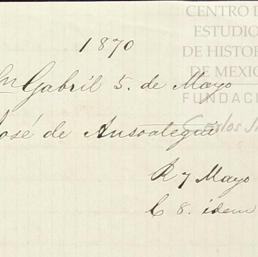 CENTRO D
ESTUDIO
DE HISTOR
DE MEXIC
FUNDACI
1870
Sn Gabriel 5. de Mayo
José de Ansoategui
R 7 Mayo
C 8. idem